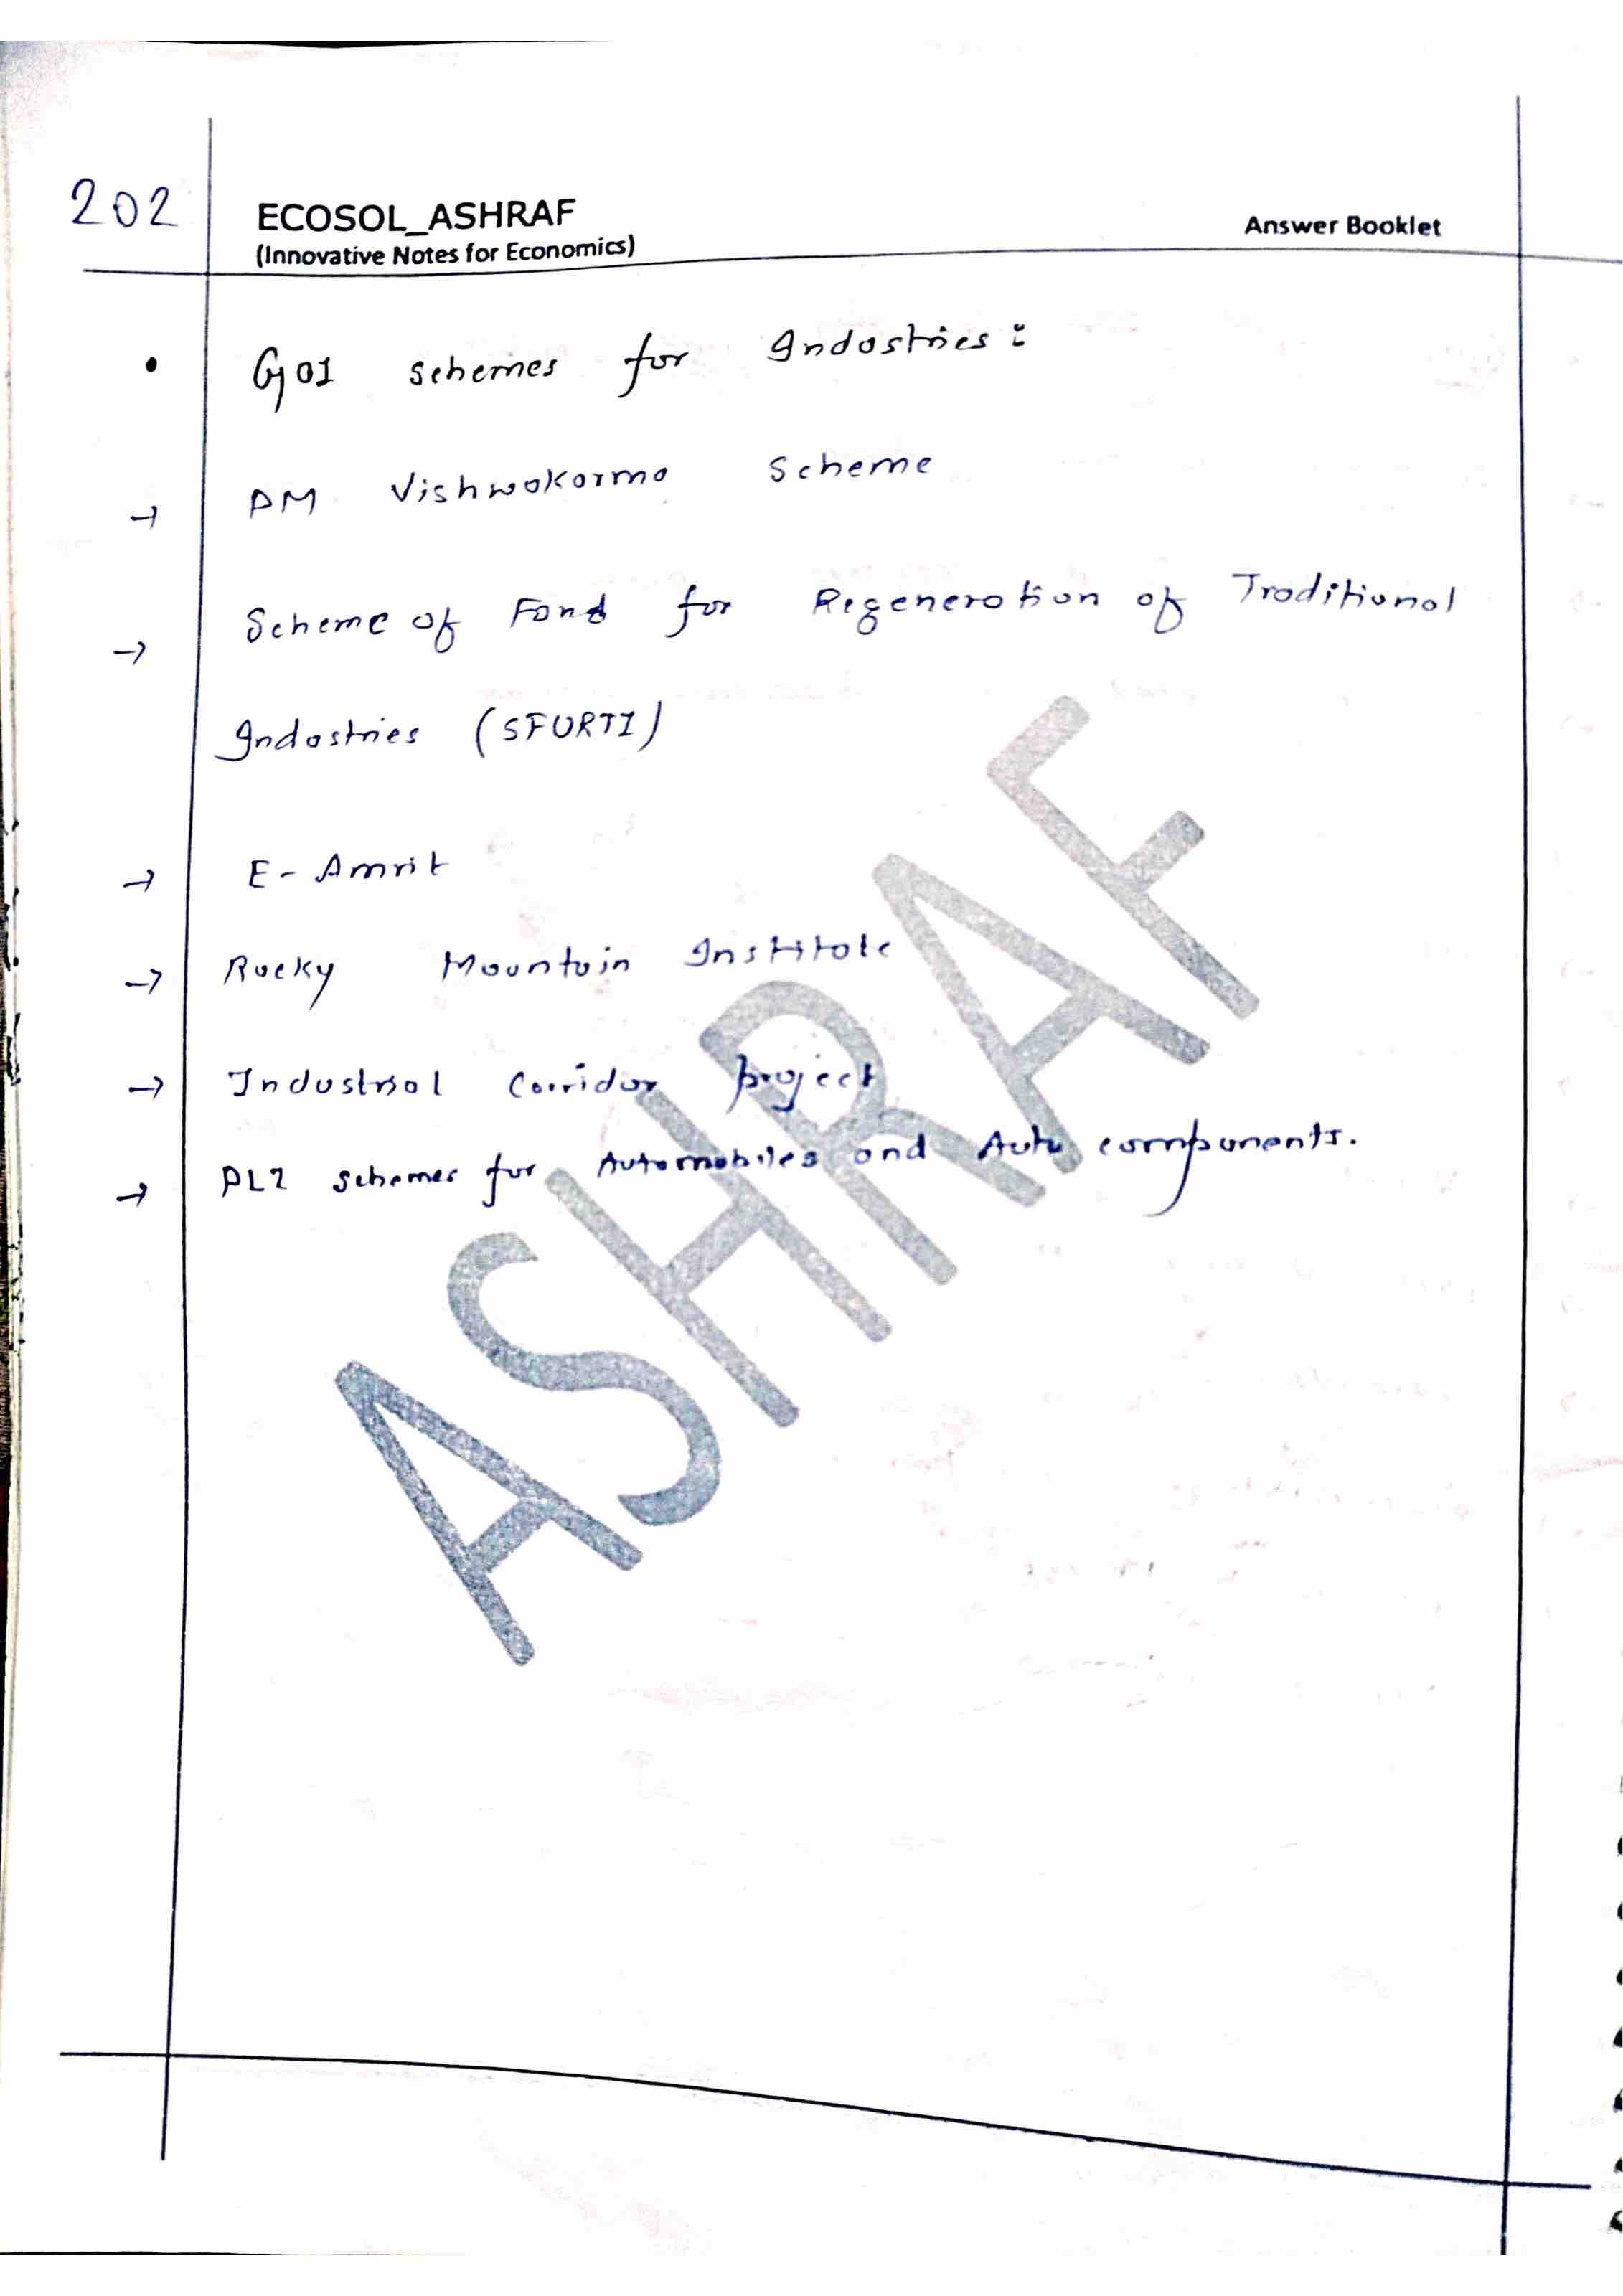 202
ECOSOL_ASHRAF
Answer Booklet
(Innovative Notes for Economics)
• GOI schemes for Industries:
→ PM Vishwakarma Scheme
→ Scheme of Fund for Regeneration of Traditional
Industries (SFURTI)
→ E-Amrit
→ Rocky Mountain Institute
→ Industrial Corridor project
→ PLI schemes for Automobiles and Auto components.
ASHRAF